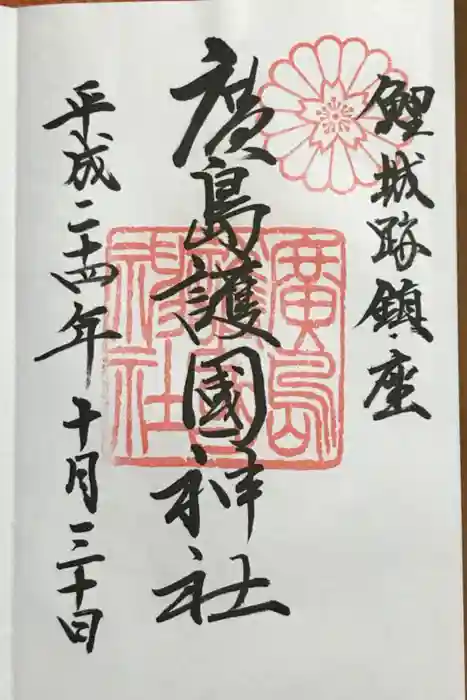 鯉城跡鎮座
廣島護國神社
平成二十四年 十月三十日
廣島
護國
神社